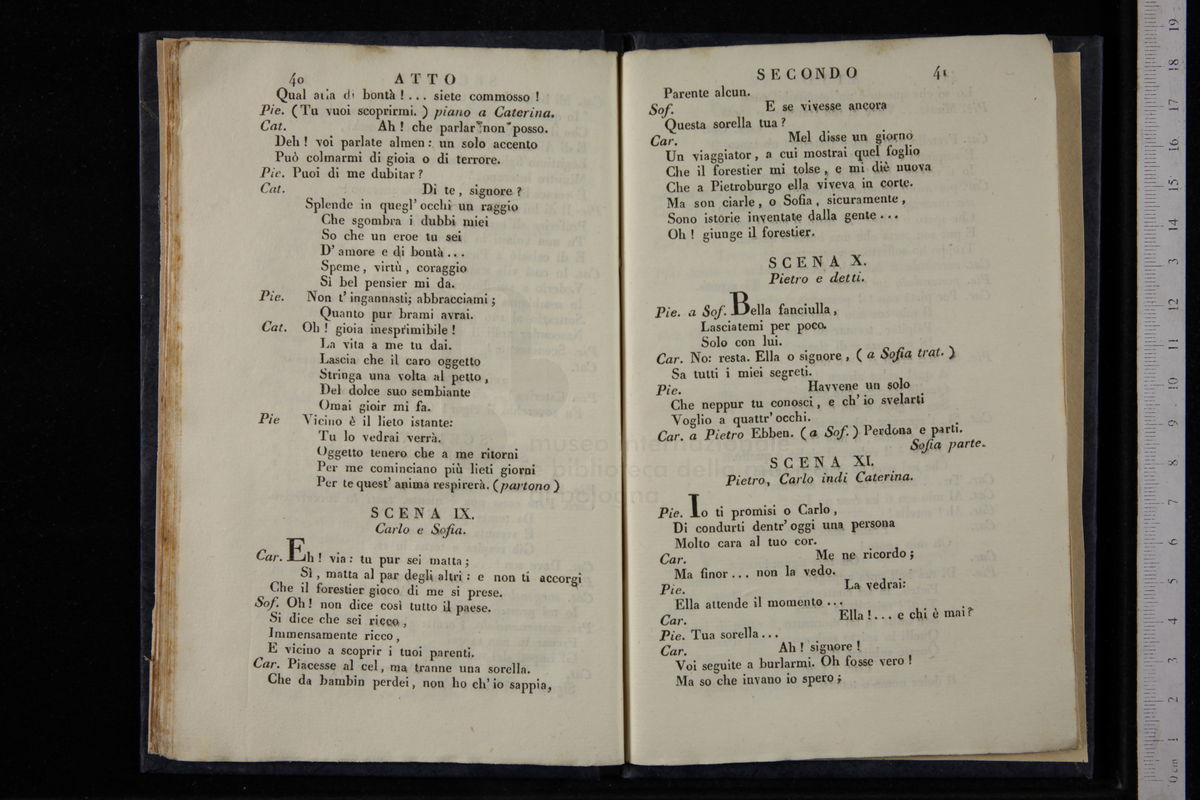 40 ATTO
Qual aria di bontà ! ... siete commosso !
Pie. ( Tu vuoi scoprirmi. ) piano a Caterina.
Cat. Ah ! che parlar non posso.
Deh ! voi parlate almen : un solo accento
Può colmarmi di gioia o di terrore.
Pie. Puoi di me dubitar ?
Cat. Di te , signore ?
Splende in quegl' occhi un raggio
Che sgombra i dubbi miei
So che un eroe tu sei
D' amore e di bontà ...
Speme , virtù , coraggio
Si bel pensier mi da.
Pie. Non t' ingannasti; abbracciami ;
Quanto pur brami avrai.
Cat. Oh ! gioia inesprimibile !
La vita a me tu dai.
Lascia che il caro oggetto
Stringa una volta al petto ,
Del dolce suo sembiante
Omai gioir mi fa.
Pie Vicino è il lieto istante:
Tu lo vedrai verrà.
Oggetto tenero che a me ritorni
Per me cominciano più lieti giorni
Per te quest' anima respirerà. ( partono )
SCENA IX.
Carlo e Sofia.
Car. Eh ! via : tu pur sei matta ;
Sì , matta al par degli altri : e non ti accorgi
Che il forestier gioco di me si prese.
Sof. Oh ! non dice così tutto il paese.
Si dice che sei ricco ,
Immensamente ricco ,
E vicino a scoprir i tuoi parenti.
Car. Piacesse al cel , ma tranne una sorella.
Che da bambin perdei , non ho ch' io sappia,
SECONDO 41
Parente alcun.
Sof. E se vivesse ancora
Questa sorella tua ?
Car. Mel disse un giorno
Un viaggiator , a cui mostrai quel foglio
Che il forestier mi tolse , e mi diè nuova
Che a Pietroburgo ella viveva in corte.
Ma son ciarle , o Sofia , sicuramente ,
Sono istorie inventate dalla gente ...
Oh ! giunge il forestier.
SCENA X.
Pietro e detti.
Pie. a Sof. Bella fanciulla ,
Lasciatemi per poco.
Solo con lui.
Car. No: resta. Ella o signore , ( a Sofia trat. )
Sa tutti i miei segreti.
Pie. Havvene un solo
Che neppur tu conosci , e ch' io svelarti
Voglio a quattr' occhi.
Car. a Pietro Ebben. ( a Sof. ) Perdona e parti.
Sofia parte.
SCENA XI.
Pietro, Carlo indi Caterina.
Pie. Io ti promisi o Carlo ,
Di condurti dentr' oggi una persona
Molto cara al tuo cor.
Car. Me ne ricordo ;
Ma finor ... non la vedo.
Pie. La vedrai:
Ella attende il momento ...
Car. Ella ! ... e chi è mai ?
Pie. Tua sorella ...
Car. Ah ! signore !
Voi seguite a burlarmi. Oh fosse vero !
Ma so che invano io spero ;